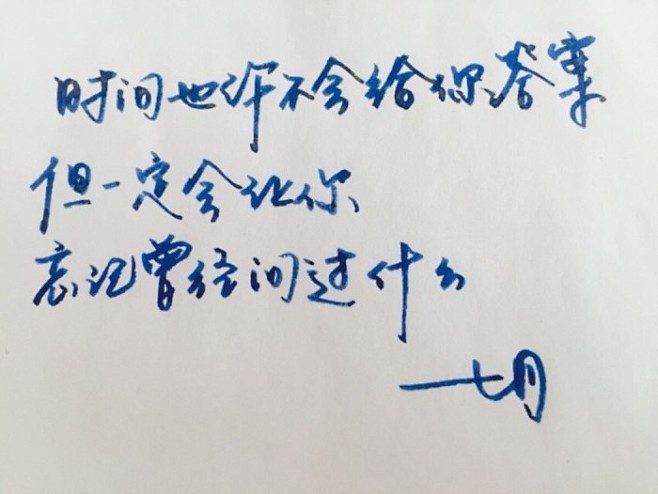 时间也许不会给你答案
但一定会让你
忘记曾经问过什么
——七月